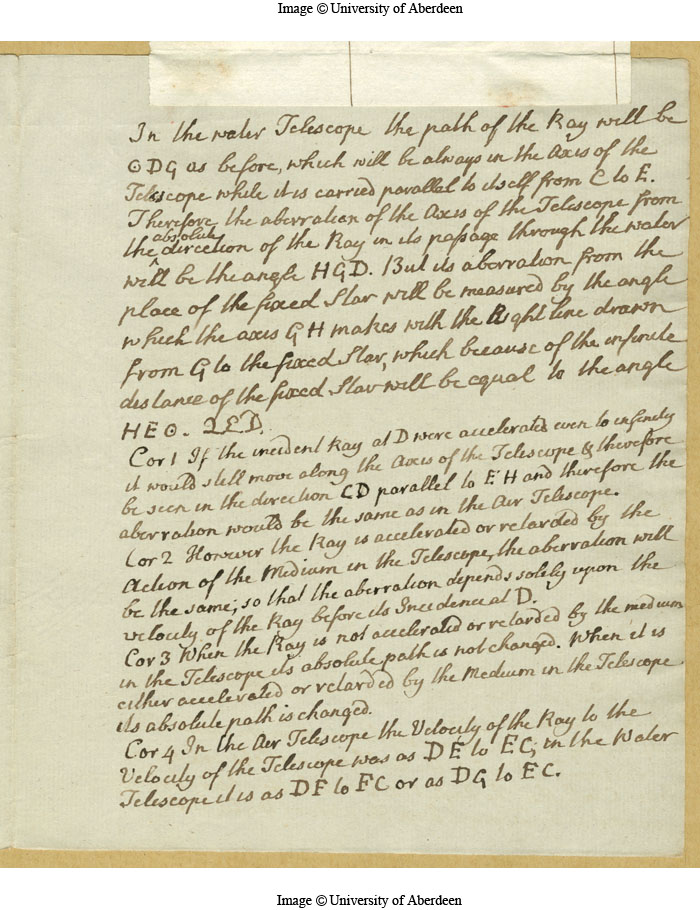 Image © University of Aberdeen
In the water Telescope the path of the Ray will be
⊙DG as before, which will be always in the Axis of the
Telescope while it is carried parallel to itself from C to E.
Therefore the aberration of the Axis of the Telescope from
the absolute direction of the Ray in its paſsage through the water
will be the angle HGD. But its aberration from the
place of the fixed Star will be measured by the angle
which the axis GH makes with the Right line drawn
from G to the fixed Star, which because of the infinite
distance of the fixed Star will be equal to the angle
HE⊙. QED.
Cor 1 If the incident Ray at D were accelerated even to infinity
it would still move along the Axis of the Telescope & therefore
be seen in the direction CD parallel to EH and therefore the
aberration would be the same as in the Air Telescope.
Cor 2 However the Ray is accelerated or retarded by the
Action of the Medium in the Telescope, the aberration will
be the same; so that the aberration depends solely upon the
velocity of the Ray before its Incidence at D.
Cor 3 When the Ray is not accelerated or retarded by the medium
in the Telescope its absolute path is not changed. When it is
either accelerated or retarded by the Medium in the Telescope
its absolute path is changed.
Cor 4 In the Air Telescope the Velocity of the Ray to the
Velocity of the Telescope was as DE to EC; in the Water
Telescope it is as DF to FC or as DG to EC.
Image © University of Aberdeen